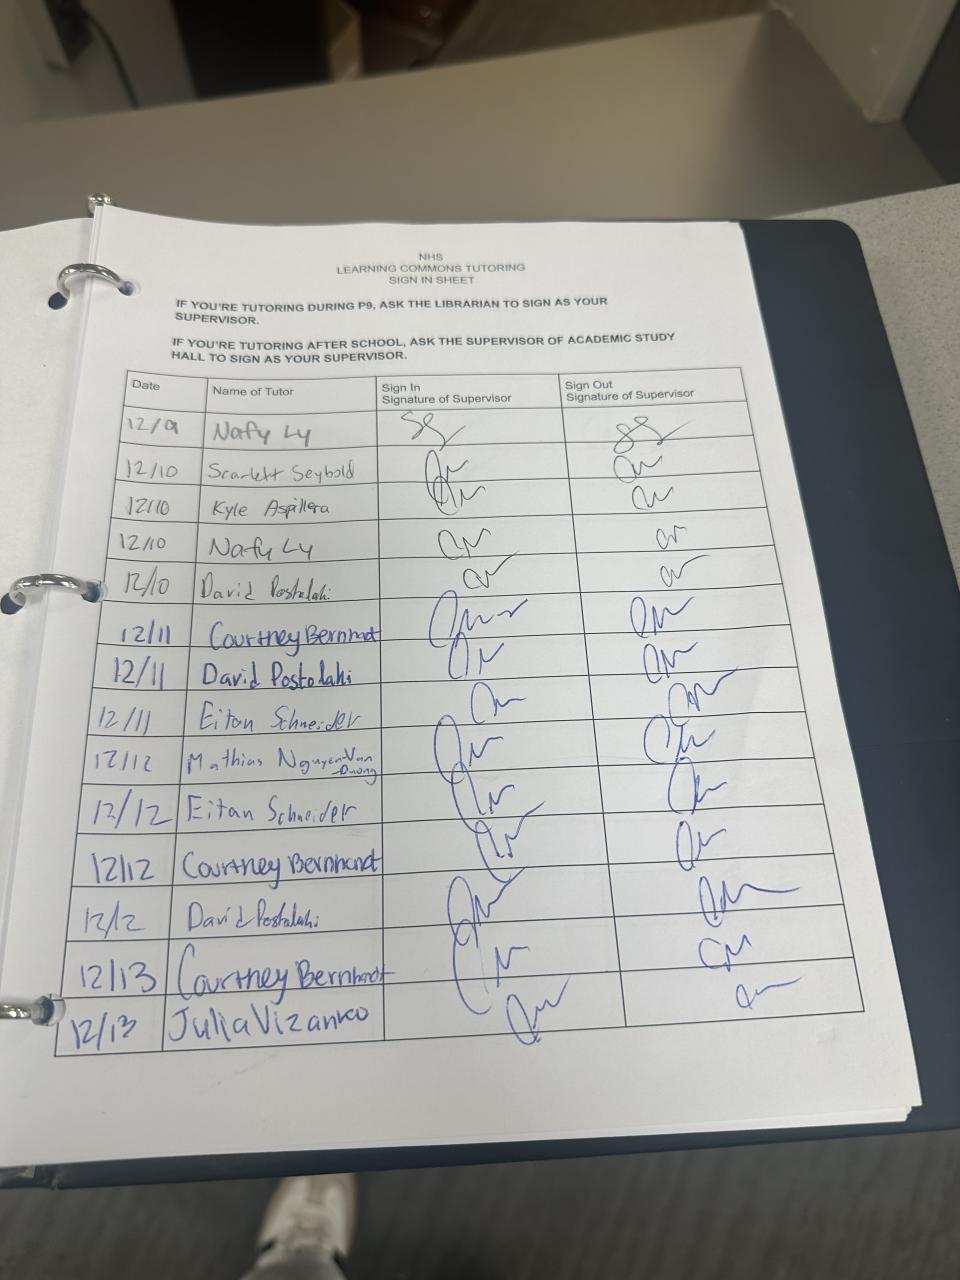 NHS
LEARNING COMMONS TUTORING
SIGN IN SHEET
IF YOU'RE TUTORING DURING P9, ASK THE LIBRARIAN TO SIGN AS YOUR
SUPERVISOR.
IF YOU'RE TUTORING AFTER SCHOOL, ASK THE SUPERVISOR OF ACADEMIC STUDY
HALL TO SIGN AS YOUR SUPERVISOR.
Date Name of Tutor Sign In Sign Out
Signature of Supervisor Signature of Supervisor
12/9 Nafy Ly
12/10 Scarlett Seybold
12/10 Kyle Aspillera
12/10 Nafy Ly
12/10 David Postolahi
12/11 Courtney Bernhardt
12/11 David Postolahi
12/11 Eitan Schneider
12/12 Mathias Nguyen-Van
-Duong
12/12 Eitan Schneider
12/12 Courtney Bernhardt
12/12 David Postolahi
12/13 Courtney Bernhardt
12/13 Julia Vizanko